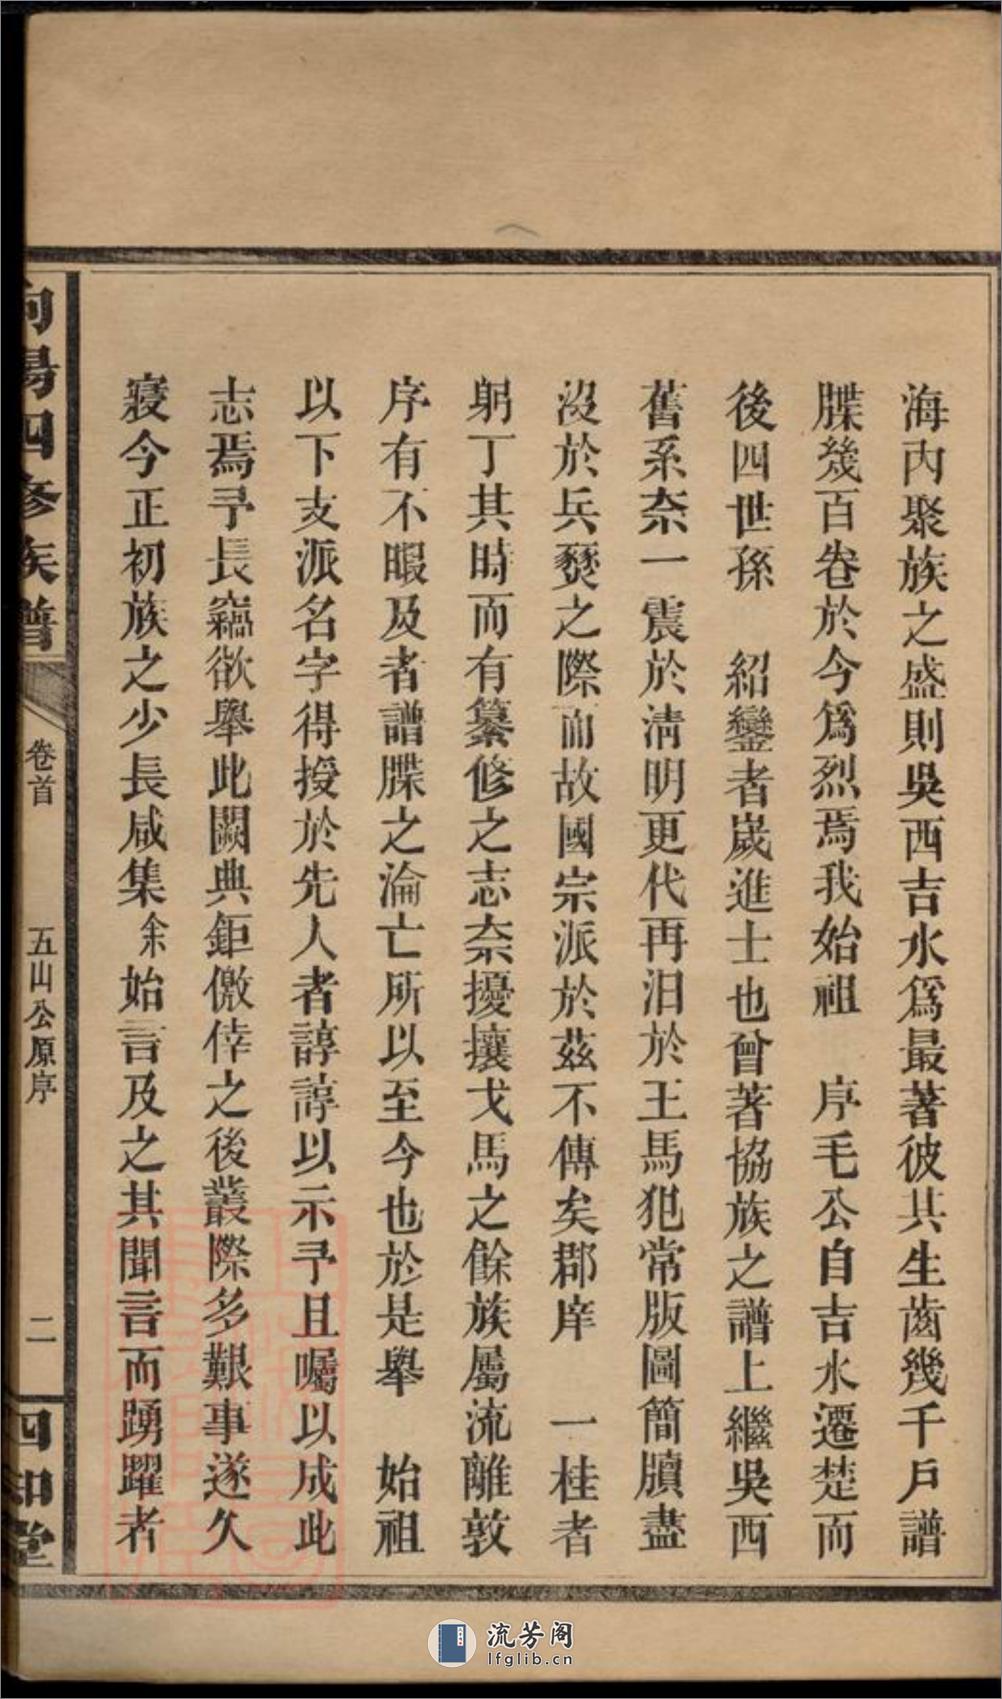 海內聚族之盛則吳西吉水爲最著彼其生齒幾千戶譜
牒幾百卷於今爲烈焉我始祖 序毛公自吉水遷楚而
後四世孫 紹鑾者嵗進士也曾著協族之譜上繼吳西
舊系柰一震於淸明更代再汨於王馬犯常版圖簡牘盡
沒於兵燹之際而故國宗派於茲不傳矣郡庠 一桂者
躬丁其時而有纂修之志柰擾攘戈馬之餘族屬流離敦
序有不暇及者譜牒之淪亡所以至今也於是舉 始祖
以下支派名字得授於先人者諄諄以示予且囑以成此
志焉予長竊欲舉此闕典鉅儌倖之後叢際多艱事遂久
寢今正初族之少長咸集余始言及之其聞言而踴躍者
向陽四修族譜
卷首
五山公原序
二
四知堂
流芳阁
lfglib.cn